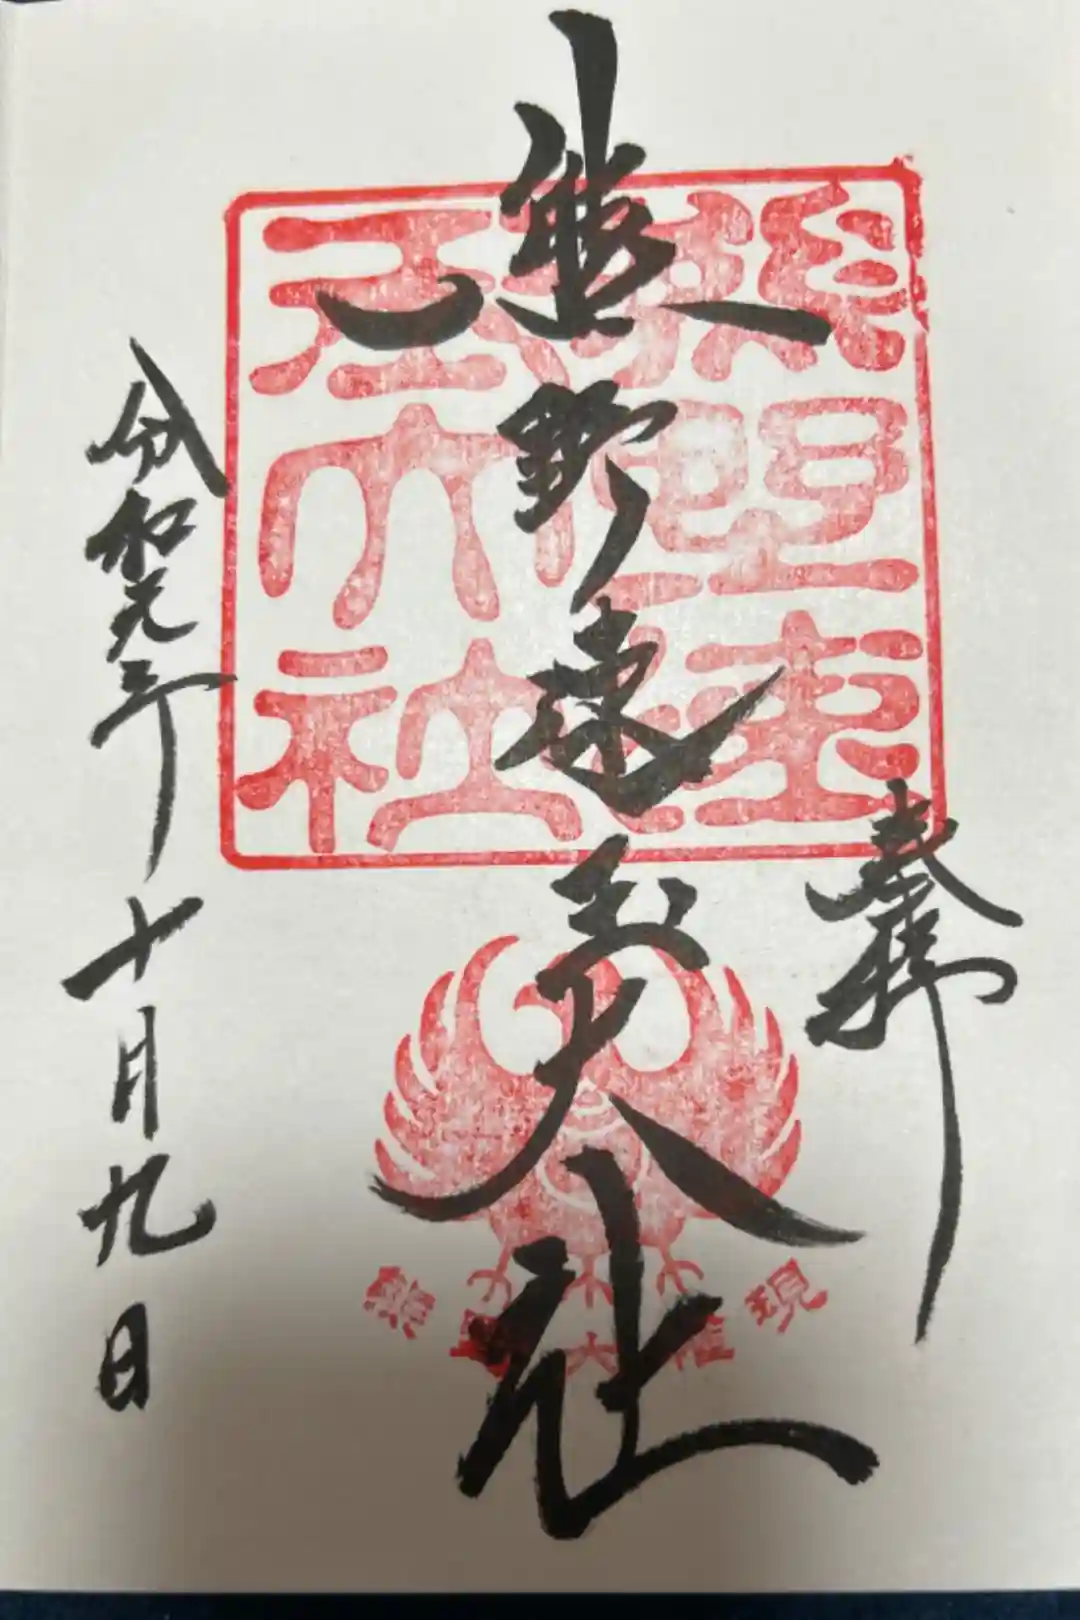 奉拝
熊野速玉大社
令和元年十月九日
熊野速
玉大社
熊野大権現